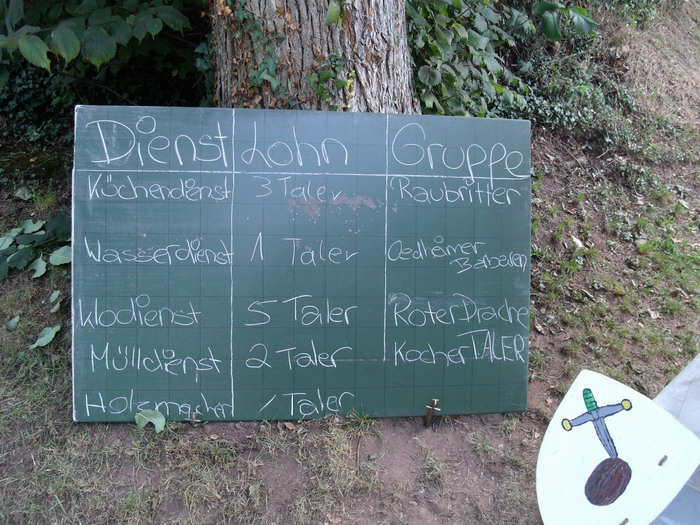 Dienst Lohn Gruppe
Küchendienst 3 Taler Raubritter
Wasserdienst 1 Taler Oedheimer
Barbaren
Klodienst 5 Taler Roter Drache
Mülldienst 2 Taler Kocher TALER
Holzmachen 1 Taler